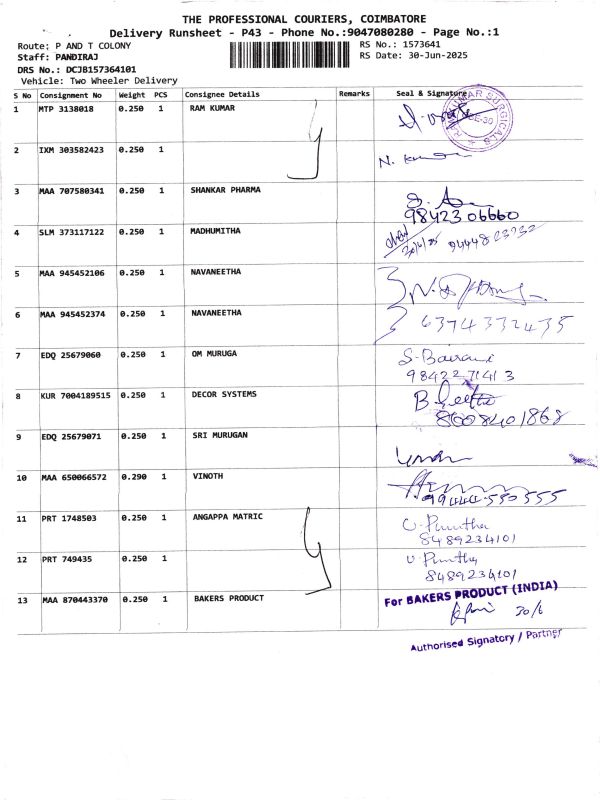 THE PROFESSIONAL COURIERS, COIMBATORE
Delivery Runsheet - P43 - Phone No.:9047080280 - Page No.:1
Route: P AND T COLONY
RS No.: 1573641
Staff: PANDIRAJ
RS Date: 30-Jun-2025
DRS No.: DCJB157364101
Vehicle: Two Wheeler Delivery
S No Consignment No Weight PCS Consignee Details Remarks Seal & Signature
1 MTP 3138018 0.250 1 RAM KUMAR
2 IXM 303582423 0.250 1 N. Kumar
3 MAA 707580341 0.250 1 SHANKAR PHARMA
98423 06660
4 SLM 373117122 0.250 1 MADHUMITHA
30/6/25
5 MAA 945452106 0.250 1 NAVANEETHA
6 MAA 945452374 0.250 1 NAVANEETHA 6374332435
7 EDQ 25679060 0.250 1 OM MURUGA
98422 71413
8 KUR 7004189515 0.250 1 DECOR SYSTEMS B. Geetha
8608401868
9 EDQ 25679071 0.250 1 SRI MURUGAN
10 MAA 650066572 0.290 1 VINOTH
99444 550 555
11 PRT 1748503 0.250 1 ANGAPPA MATRIC
8489234101
12 PRT 749435 0.250 1
8489234101
13 MAA 870443370 0.250 1 BAKERS PRODUCT For BAKERS PRODUCT (INDIA)
30/6
Authorised Signatory / Partner